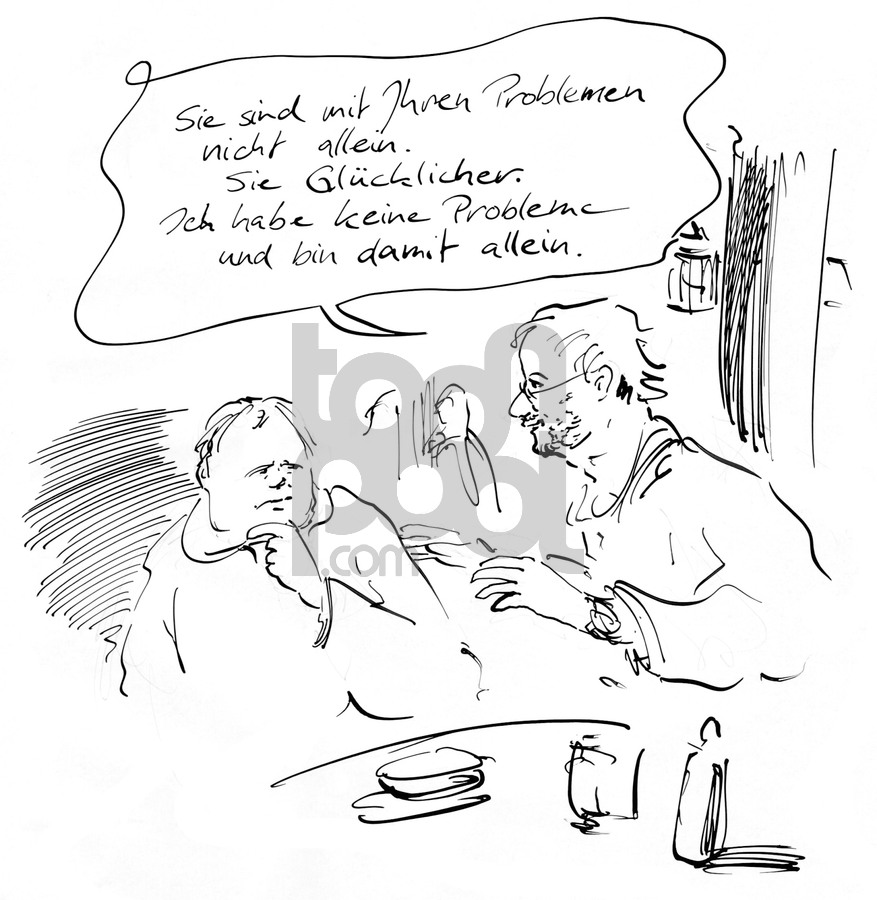 Sie sind mit Ihren Problemen
nicht allein.
Sie Glücklicher.
Ich habe keine Probleme
und bin damit allein.
toonpool
.com